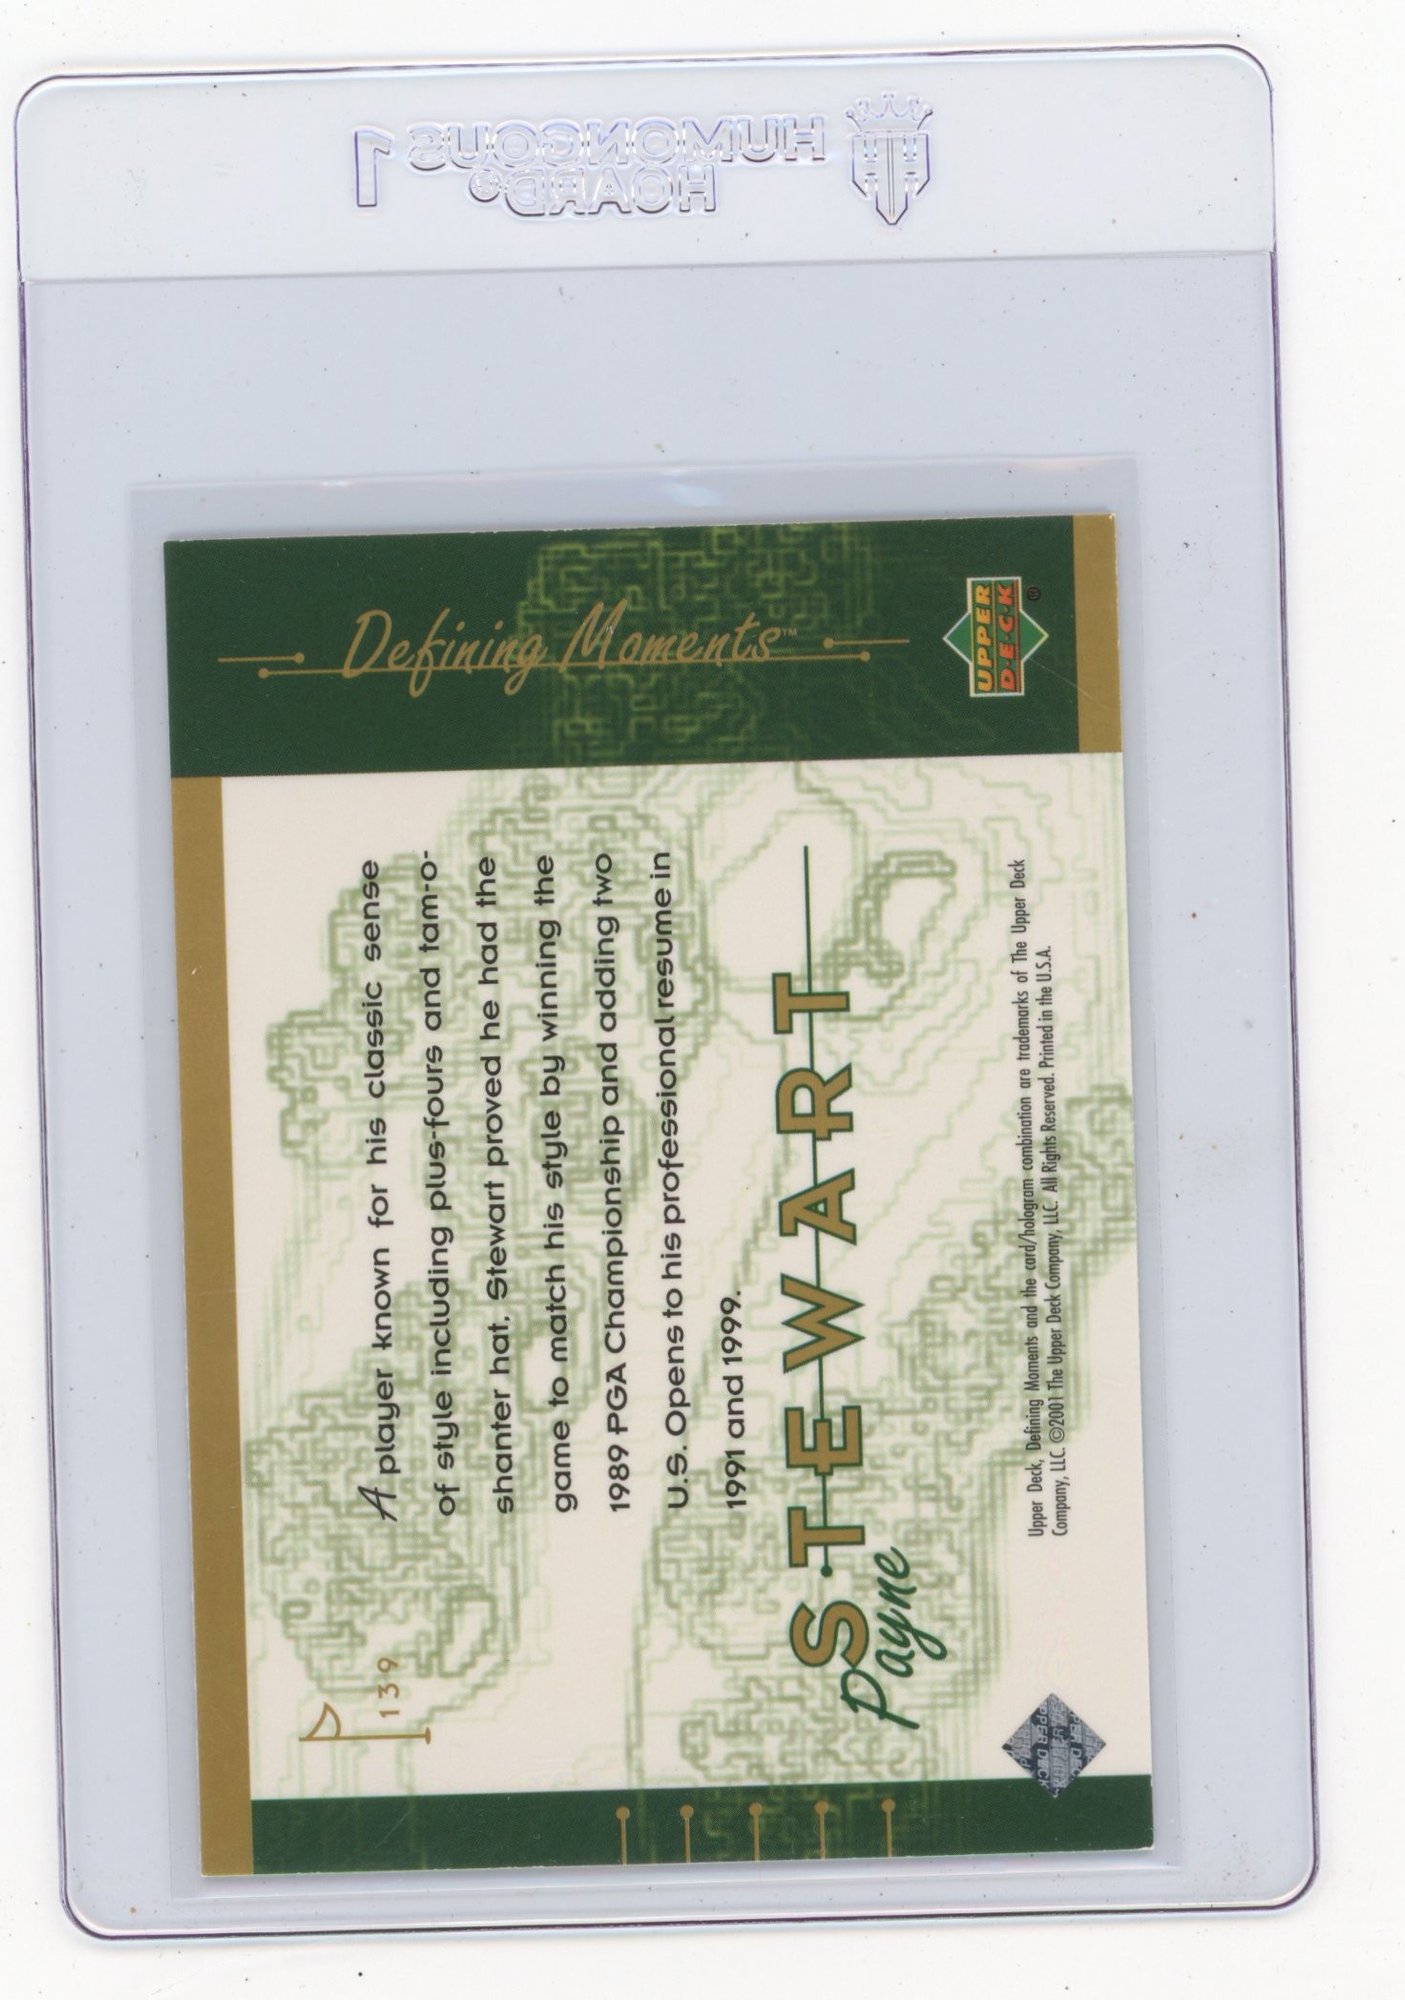 HUMONGOUS 1
HOARD®
Defining Moments™
UPPER
D·E·C·K
®
139
A player known for his classic sense
of style including plus-fours and tam-o-
shanter hat, Stewart proved he had the
game to match his style by winning the
1989 PGA Championship and adding two
U.S. Opens to his professional resume in
1991 and 1999.
STEWART
Payne
Upper Deck, Defining Moments and the card/hologram combination are trademarks of The Upper Deck
Company, LLC. ©2001 The Upper Deck Company, LLC. All Rights Reserved. Printed in the U.S.A.
UPPER DECK